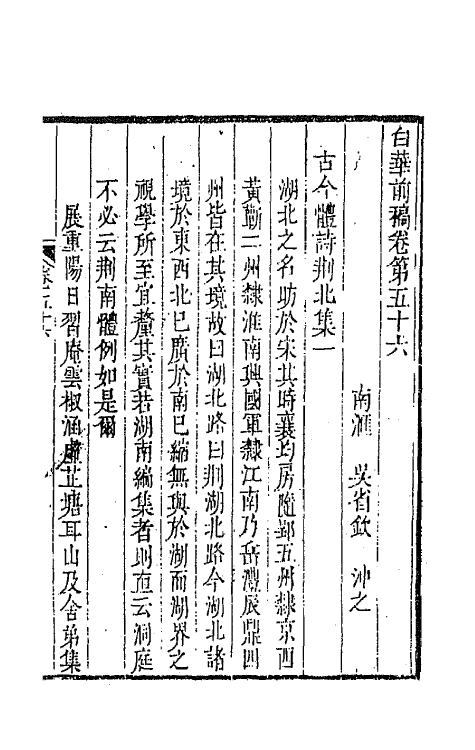 白華前稿卷第五十六
南滙　吳省欽　沖之
古今體詩荆北集一
湖北之名助於宋其時襄均房隨郢五州隸京西
黃蘄二州隸淮南興國軍隸江南乃岳澧辰鼎四
州皆在其境故曰湖北路曰荆湖北路今湖北諸
境於東西北已廣於南已縮無與於湖而湖界之
視學所至宜釐其實若湖南編集者則直云洞庭
不必云荆南體例如是爾
展重陽日習庵雲椒涵虛芷塘耳山及舍弟集
卷五十六